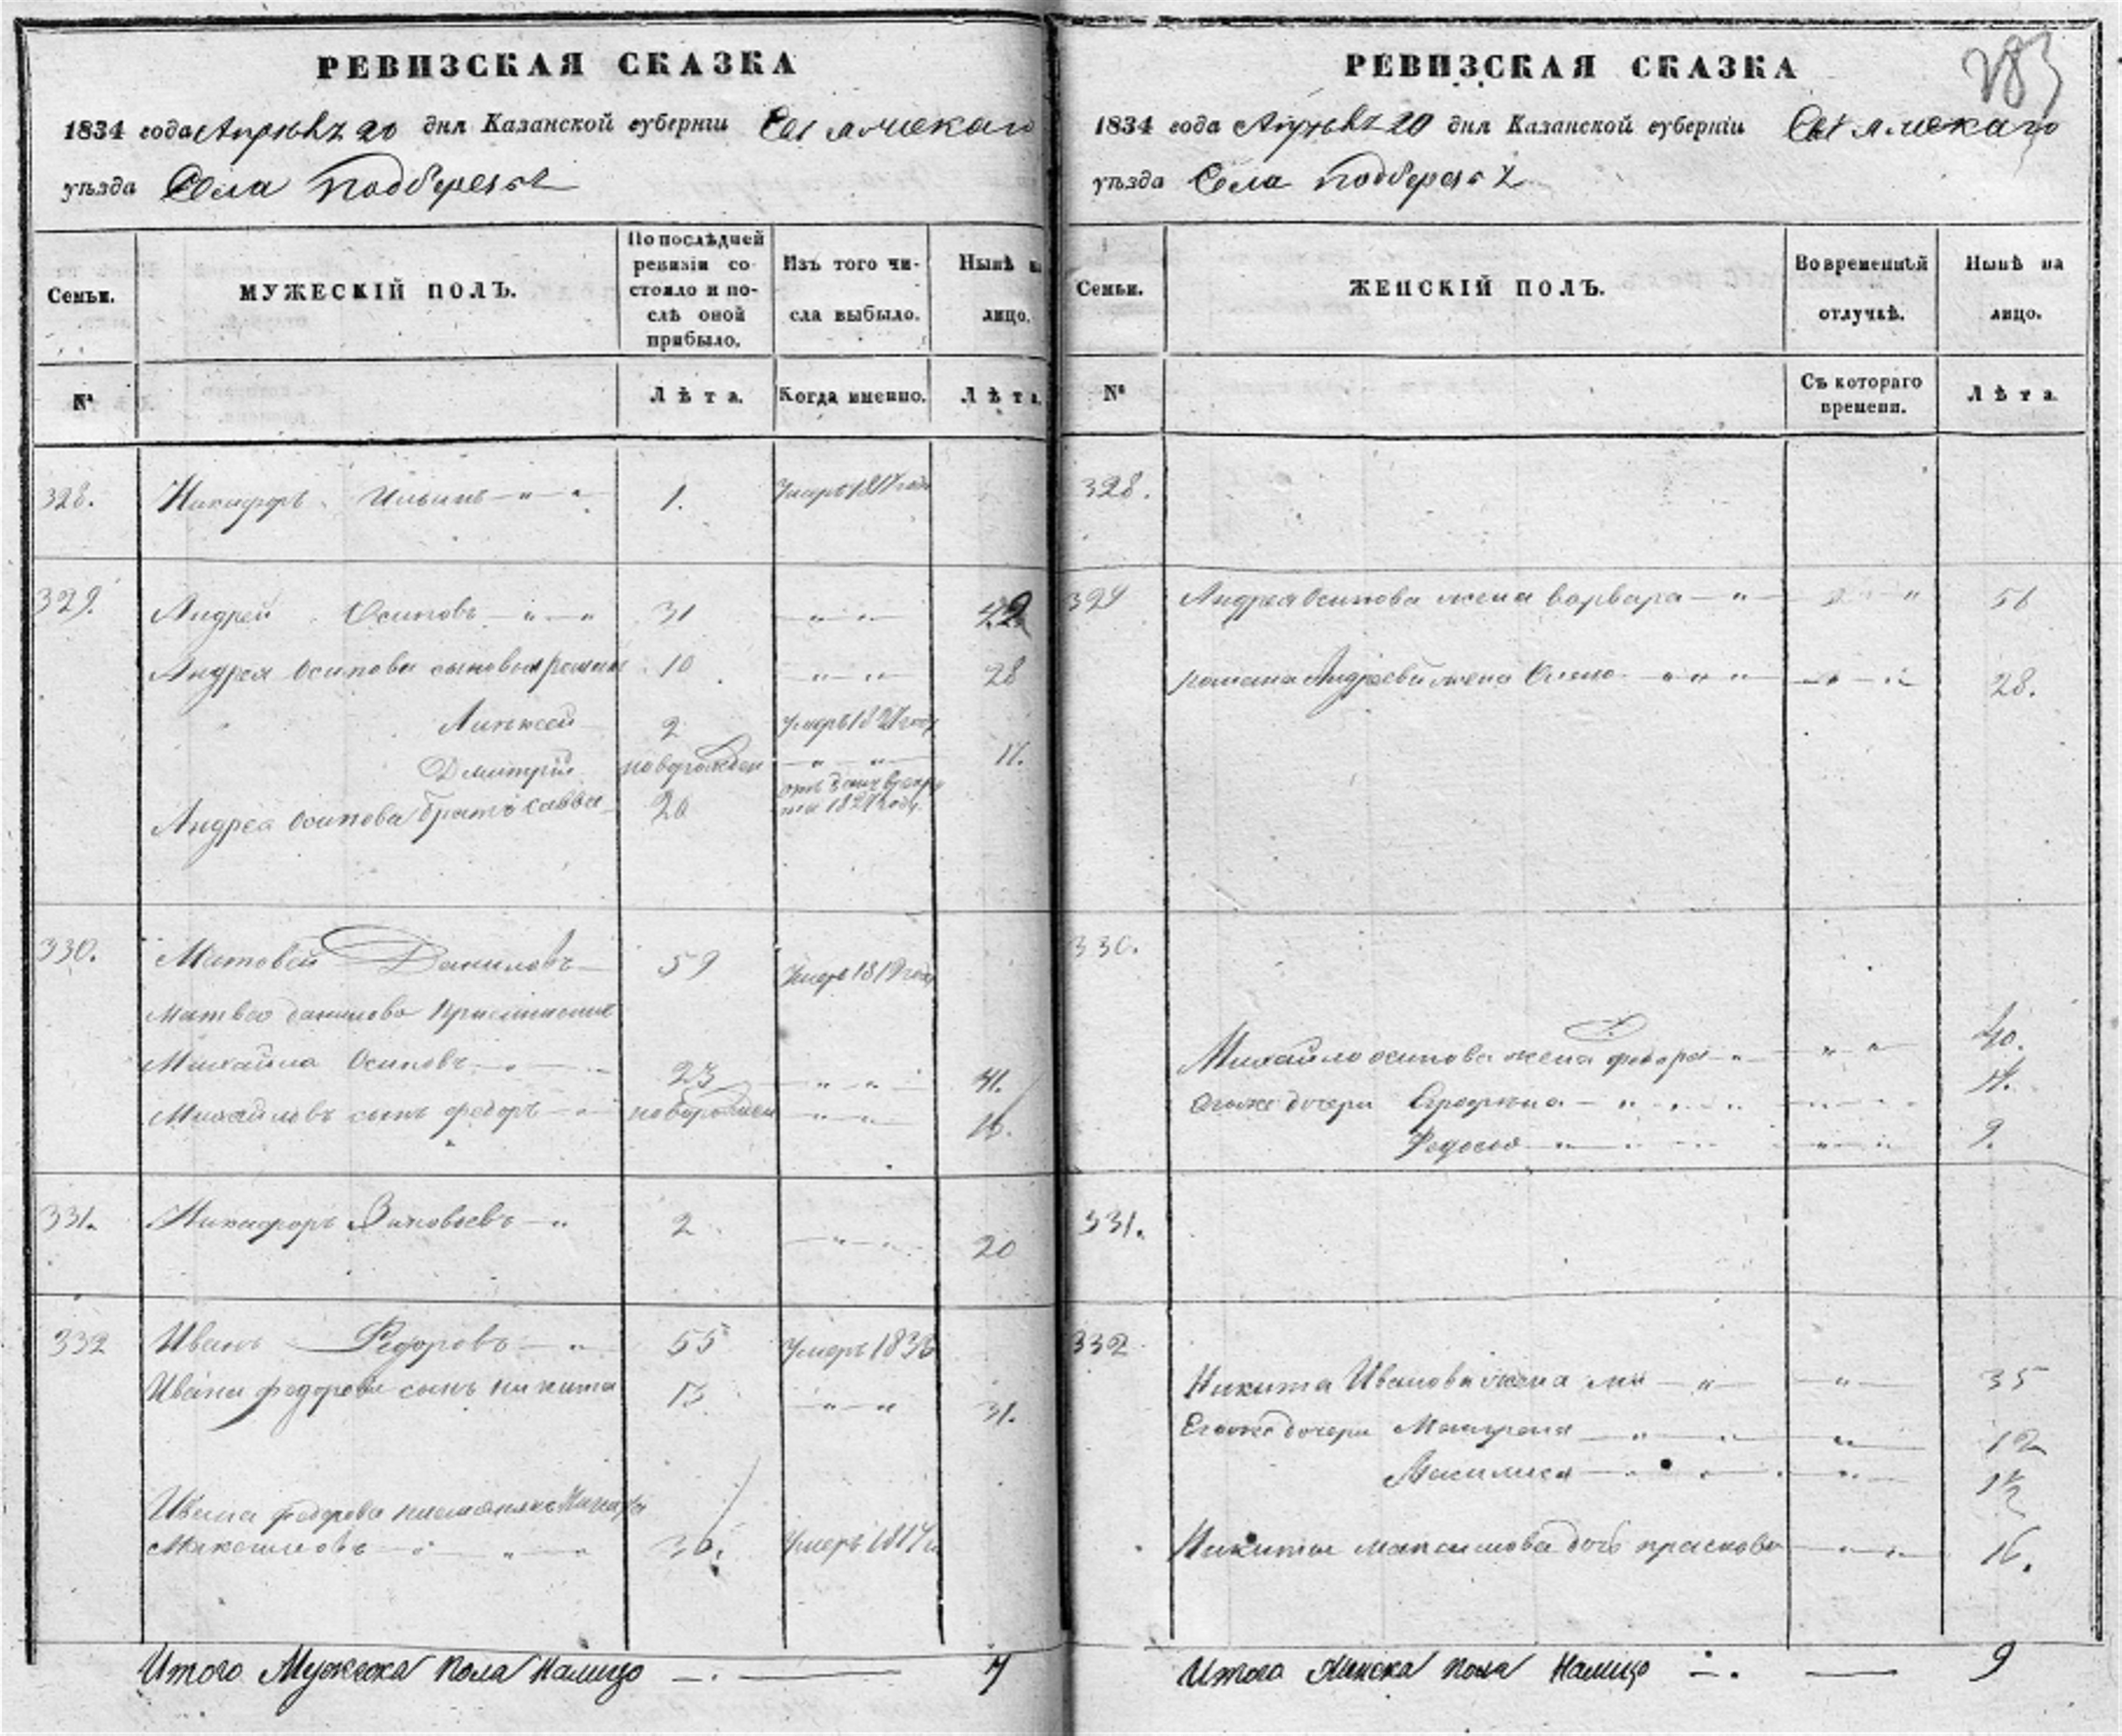 283
РЕВИЗСКАЯ СКАЗКА
1834 года Апрѣля 20 дня Казанской губерніи Свіяжскаго
уѣзда Села Подберезья
Семьи.
МУЖЕСКІЙ ПОЛЪ.
По послѣдней
ревизіи со-
стояло и по-
слѣ оной
прибыло.
Изъ того чи-
сла выбыло.
Нынѣ на
лицо.
№
Лѣта.
Когда именно.
Лѣта.
328. Никифоръ Ильинъ 1. умеръ 1817 года
329. Андрей Осиповъ 31
Андрея Осипова сыновья романъ 10 28
Алексей 2
Дмитрій новорожден 17.
Андрея Осипова братъ савва 26
330. Матвей Даниловъ 59 умеръ 1819 года
Матвея данилова
Михайла Осиповъ 23 41.
Михайловъ сынъ федоръ новорожден 16.
331. Никифоръ Зиновьевъ 2 20
332 Иванъ Федоровъ 55 умеръ
Ивана федорова сынъ никита 13 31.
Ивана федорова племянникъ
Максимовъ 36. умеръ
Итого Мужеска пола Налицо 7
РЕВИЗСКАЯ СКАЗКА
1834 года Апрѣля 20 дня Казанской губерніи Свіяжскаго
уѣзда Села Подберезья
Семьи.
ЖЕНСКІЙ ПОЛЪ.
Во временнѣй
отлучкѣ.
Нынѣ на
лицо.
№
Съ котораго
времени.
Лѣта.
328.
329 Андрея Осипова жена варвара
романа Андреева жена 28.
330.
Михайло осипова жена федора 40.
Егоже дочери
Федосья 9.
331.
332
Никита Иванова жена 35
Егоже дочери Матрена 12
Василиса
Никиты максимова дочь прасковья 16.
Итого Женска пола Налицо 9